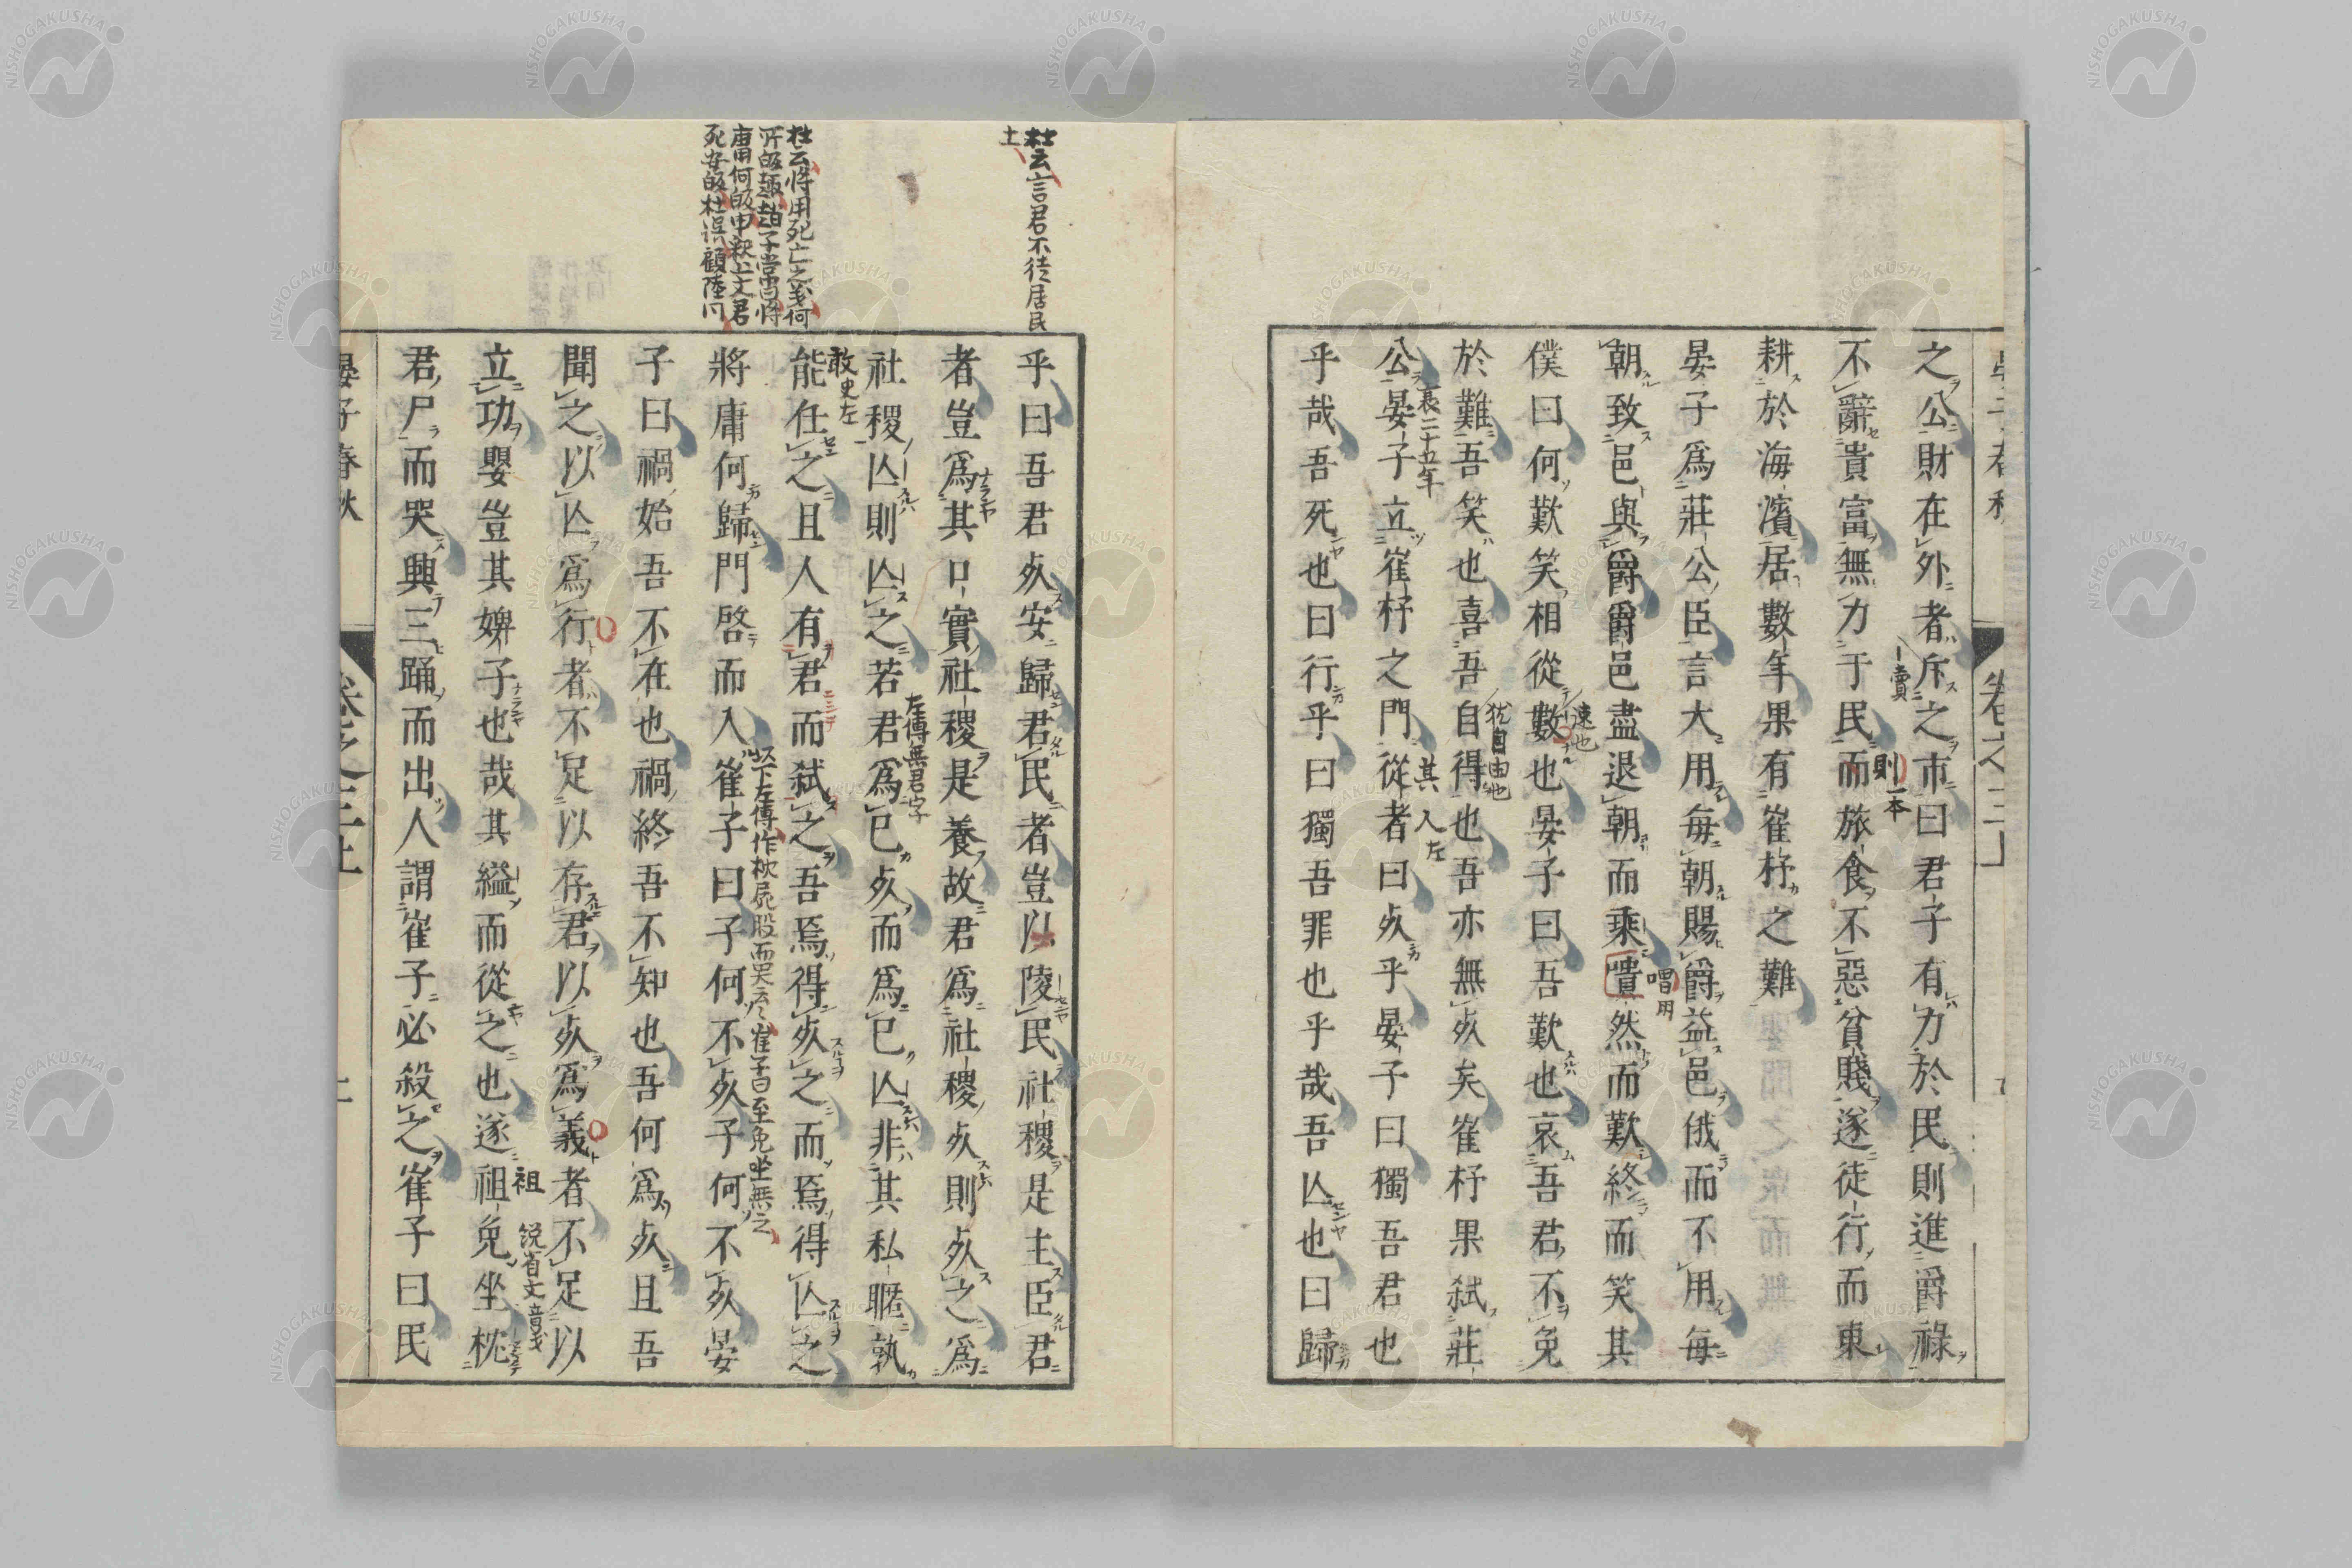 之公財在外者斥之市曰君子有力於民則進爵祿
不辭貴富無力于民而旅食不惡貧賤遂徒行而東
耕於海濱居數年果有崔杼之難
晏子爲莊公臣言大用每朝賜爵益邑俄而不用每
朝致邑與爵爵邑盡退朝而乘嘳然而歎終而笑其
僕曰何歎笑相從數也晏子曰吾歎也哀吾君不免
於難吾笑也喜吾自得也吾亦無死矣崔杼果弑莊
公晏子立崔杼之門從者曰死乎晏子曰獨吾君也
乎哉吾死也曰行乎曰獨吾罪也乎哉吾亾也曰歸
一賣
則一本
嘳用
速也
猶自由也
襄二十五年
其入左
乎曰吾君死安歸君民者豈以陵民社稷是主臣君
者豈爲其口實社稷是養故君爲社稷死則死之爲
社稷亾則亾之若君爲已死而爲已亾非其私暱孰
能任之且人有君而弑之吾焉得死之而焉得亾之
將庸何歸門啓而入崔子曰子何不死子何不死晏
子曰禍始吾不在也禍終吾不知也吾何爲死且吾
聞之以亾爲行者不足以存君以死爲義者不足以
立功嬰豈其婢子也哉其縊而從之也遂袒免坐枕
君尸而哭興三踊而出人謂崔子必殺之崔子曰民
杜云言君不徒居民
土
杜云將用死亡之義何
所皈趣趙子常曰將
庸何皈申釈上文君
死安皈杜誤顧陸同
左傳無君字
敢史左
以下左傳作枕屍股而哭云々崔子曰至免坐無之
袒
晏子春秋
卷之三上
NISHOGAKUSHA